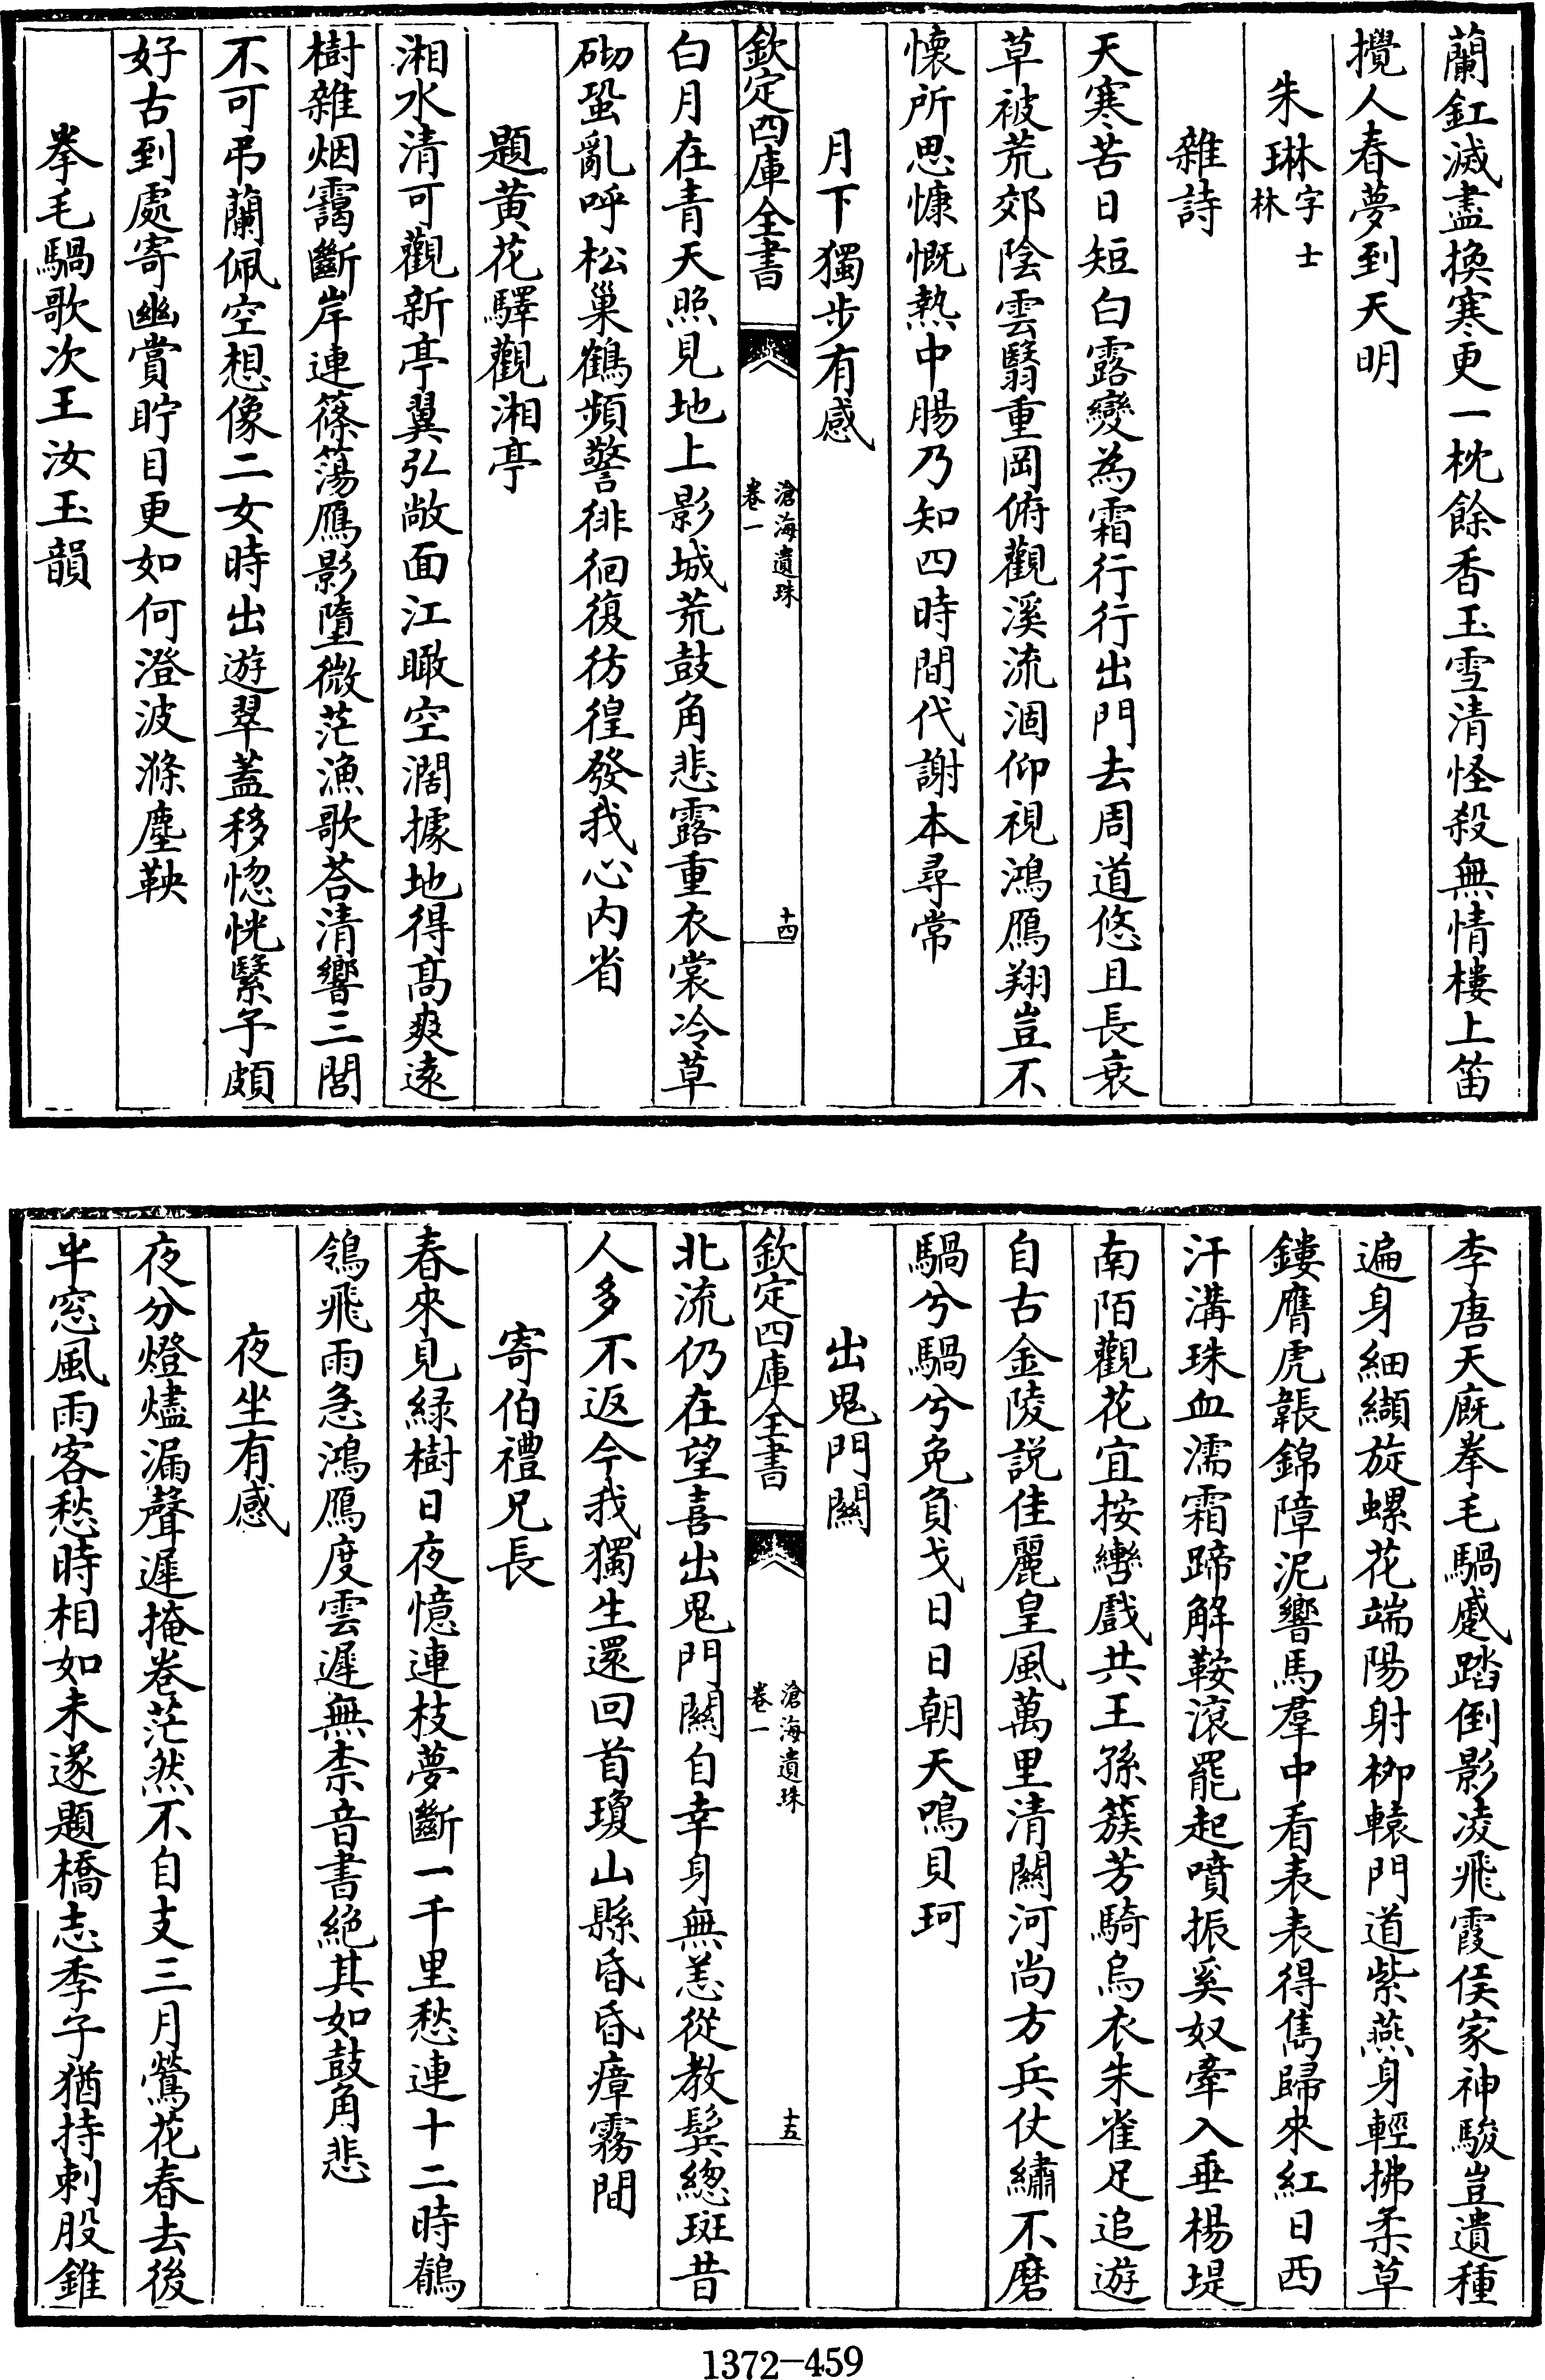 蘭釭滅盡換寒更一枕餘香玉雪清怪殺無情樓上笛
攪人春夢到天明
朱琳字士林
雜詩
天寒苦日短白露變為霜行行出門去周道悠且長衰
草被荒郊陰雲翳重岡俯觀溪流涸仰視鴻鴈翔豈不
懷所思慷慨熱中腸乃知四時間代謝本尋常
月下獨步有感
欽定四庫全書
滄海遺珠
卷一
十四
白月在青天照見地上影城荒鼓角悲露重衣裳冷草
砌蛩亂呼松巢鶴頻警徘徊復彷徨發我心内省
題黄花驛觀湘亭
湘水清可觀新亭翼弘敞面江瞰空濶據地得高爽遠
樹雜烟靄斷岸連篠蕩鴈影墮微茫漁歌荅清響三閭
不可弔蘭佩空想像二女時出遊翠蓋移惚恍繄予頗
好古到處寄幽賞貯目更如何澄波滌塵鞅
拳毛騧歌次王汝玉韻
李唐天厩拳毛騧蹙踏倒影凌飛霞侯家神駿豈遺種
遍身細纈旋螺花端陽射栁轅門道紫燕身輕拂柔草
鏤膺虎韔錦障泥響馬羣中看表表得雋歸來紅日西
汗溝珠血濡霜蹄解鞍滾罷起噴振奚奴牽入垂楊堤
南陌觀花宜按轡戲共王孫簇芳騎烏衣朱雀足追遊
自古金陵説佳麗皇風萬里清關河尚方兵仗繡不磨
騧兮騧兮免負戈日日朝天鳴貝珂
出鬼門關
欽定四庫全書
滄海遺珠
卷一
十五
北流仍在望喜出鬼門關自幸身無恙從教鬂總斑昔
人多不返今我獨生還回首瓊山縣昏昏瘴霧間
寄伯禮兄長
春來見緑樹日夜憶連枝夢斷一千里愁連十二時鶺
鴒飛雨急鴻鴈度雲遲無柰音書絶其如鼓角悲
夜坐有感
夜分燈燼漏聲遲掩卷茫然不自支三月鶯花春去後
半窓風雨客愁時相如未遂題橋志季子猶持刺股錐
1372-459